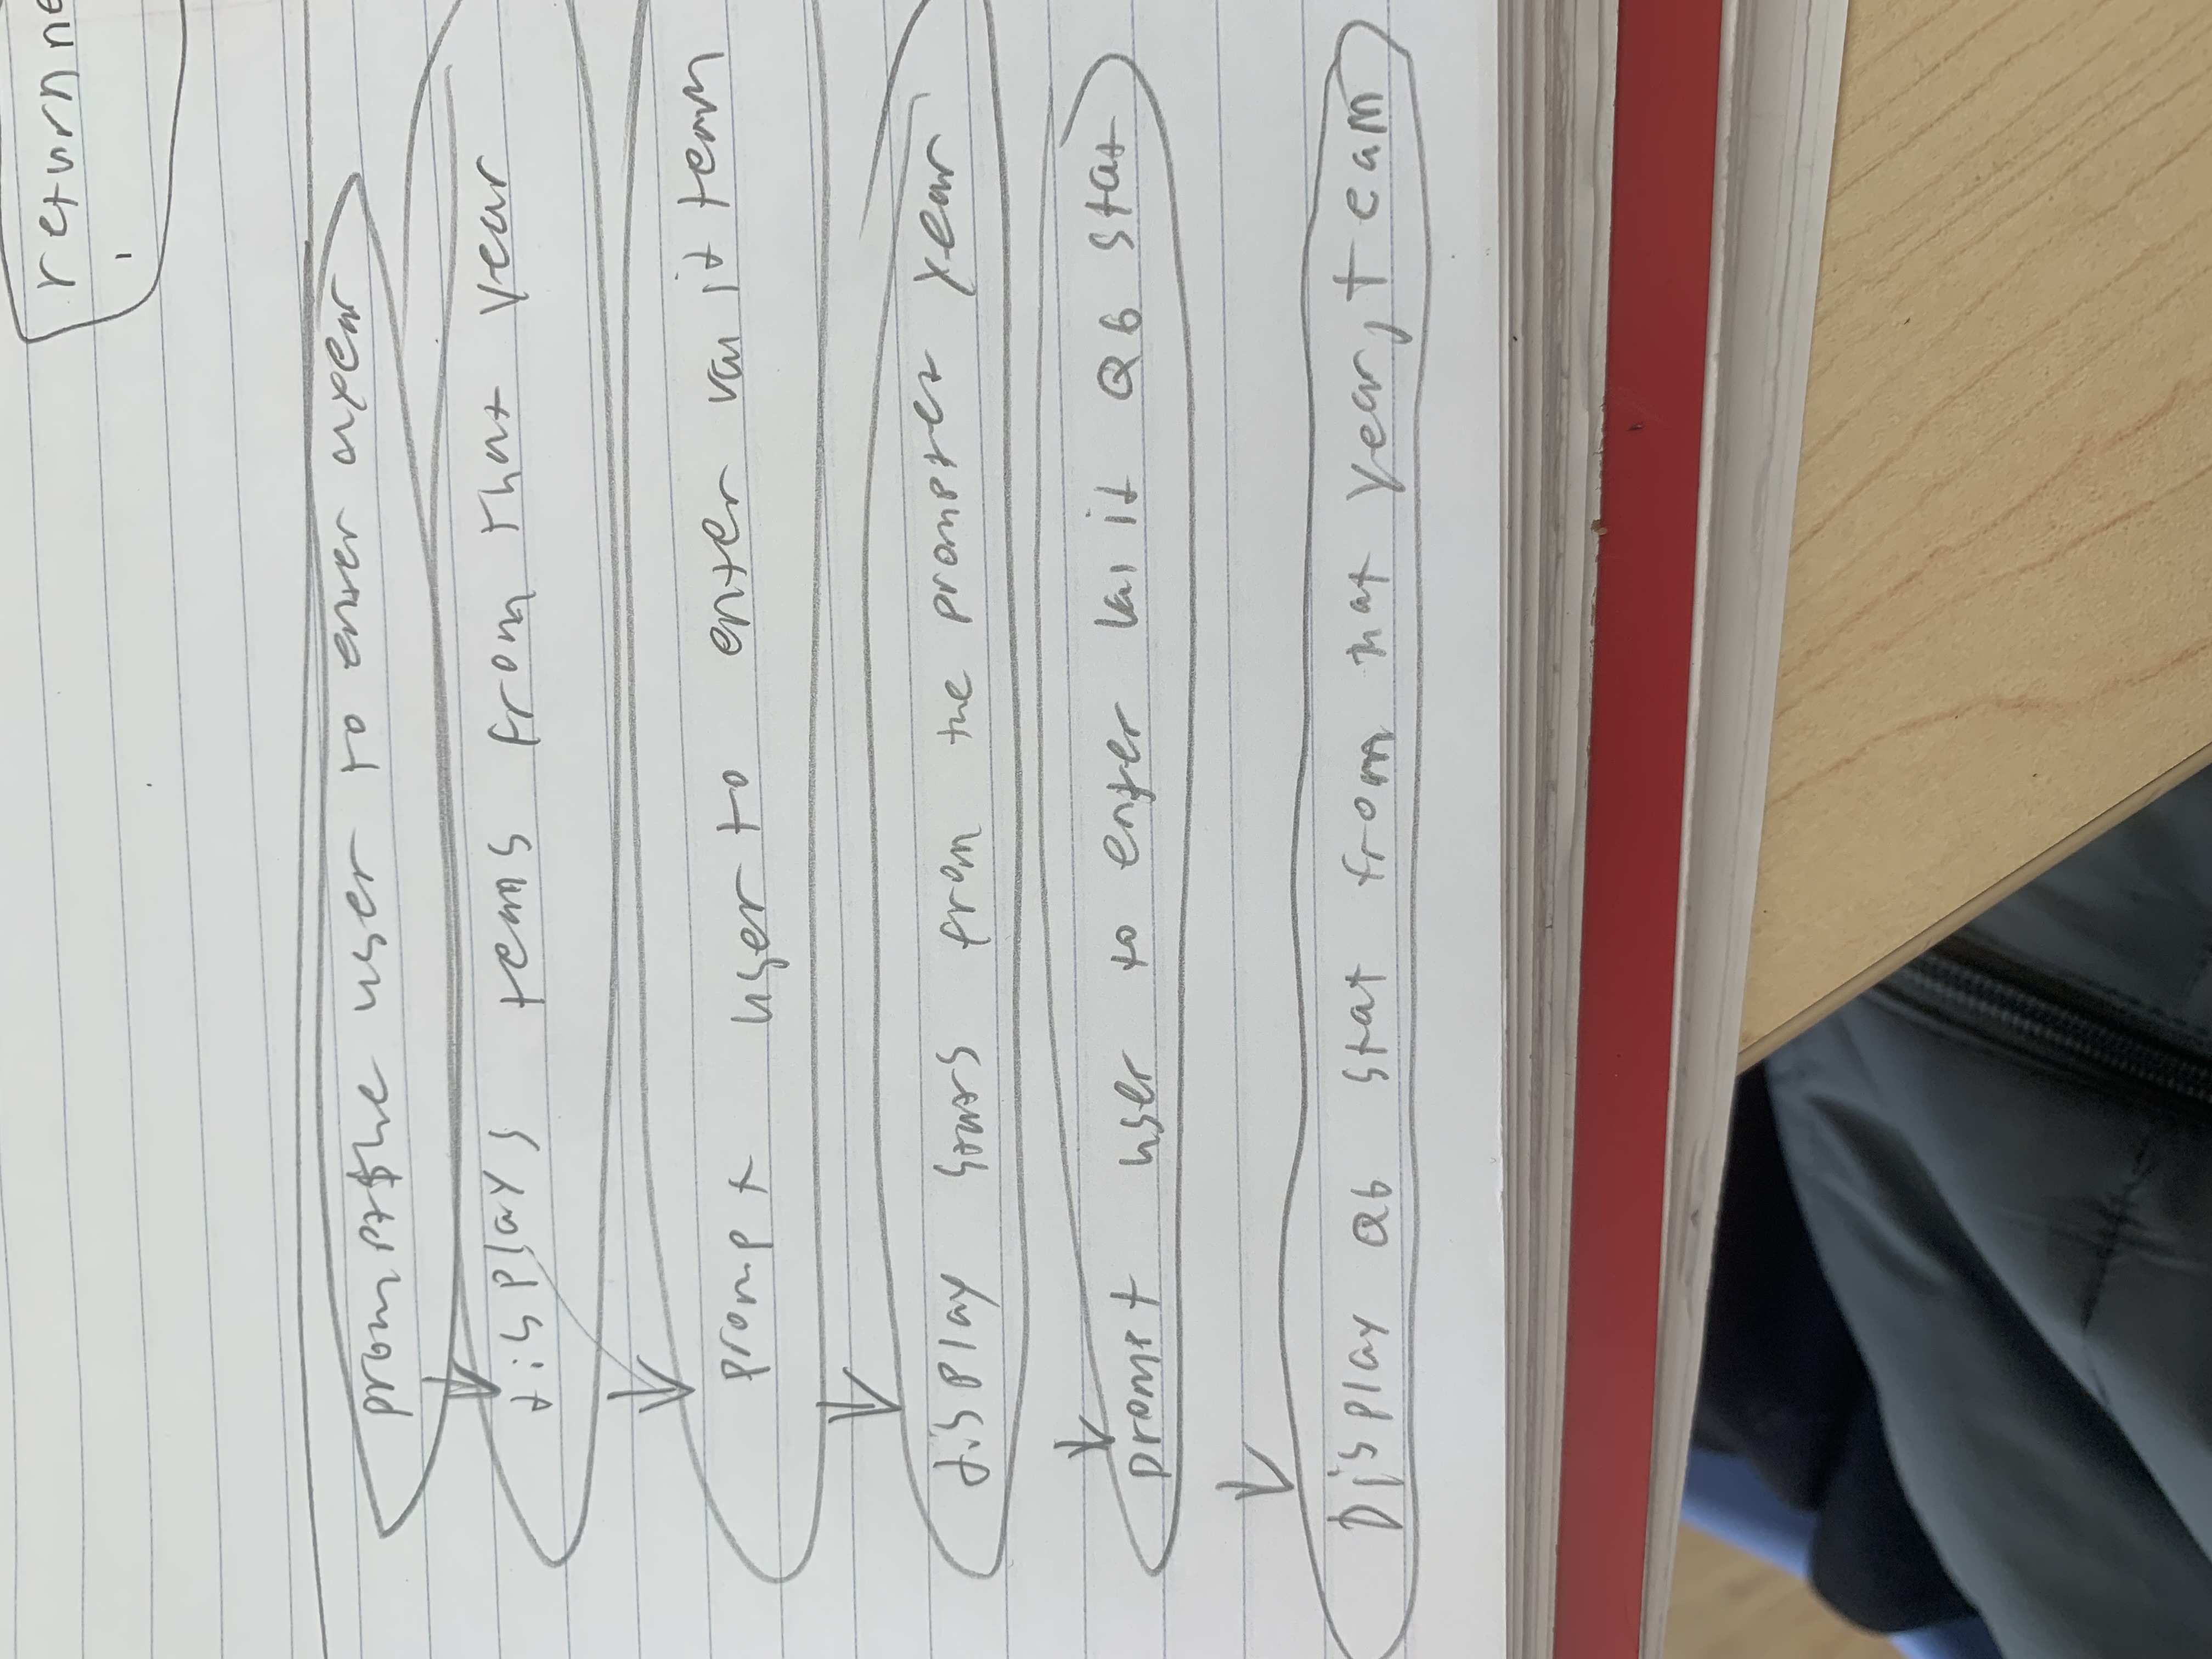 return
prompt the user to enter a year
displays teams from that year
prompt user to enter valid team
display stats from the prompted year
prompt user to enter valid QB stat
Display QB stat from that year, team